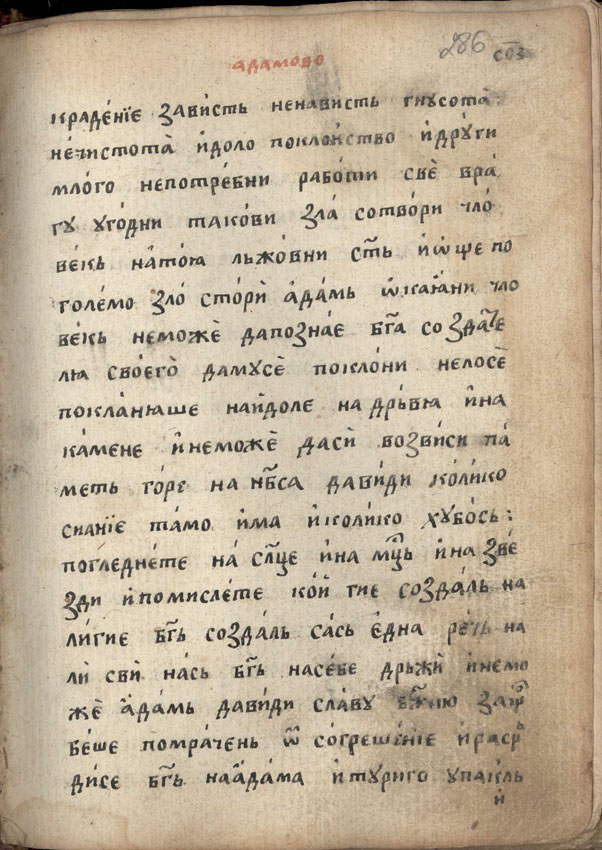 адамово
286 соз
краде́нїе за́висть ненависть гнусота̀
не́чистота̀ и҆доло поклон́ство и҆дру́ги
мло́го непотре́бни рабо́ти свѐ вра́
гу уго́дни такови зла̀ сотво́ри чло́
ве́кь на́тою льжо́вни ст҃ь и҆ѡ҆ще по
голе́мо зло̀ сто́рѝ а҆да́мь ѡ҆кая́ни чло
ве́кь неможѐ дапозна́е бг҃а со зда́те
лю своегѡ̀ дамусѐ покло́ни нелосѐ
покла́нюше наи́доле на дрьвꙗ и҆на
ка́мене и҆неможѐ даси́ возви́си па́
меть го́ре на нб҃са дави́ди ко́лико
сиа́нїе та́мо и҆ма и҆ко́лико хубо́сь:
погледне́те на́ сл҃це и҆на мц҃ь и҆на зве́
зди и҆помисле́те ко́й гие созда́ль на
ли́гие бг҃ь созда́ль са́сь е҆дна ре́чь на
лѝ сви на́сь бг҃ь насе́бе држи̇̀ и҆немо
жѐ а҆да́мь дави́ди сла́ву бж҃ию защ҃
бе́ше помра́чень ѿ со́греше́нїе и҆раср
ди́се бг҃ь наа҆да́ма и҆туриго упа́кль
и҆